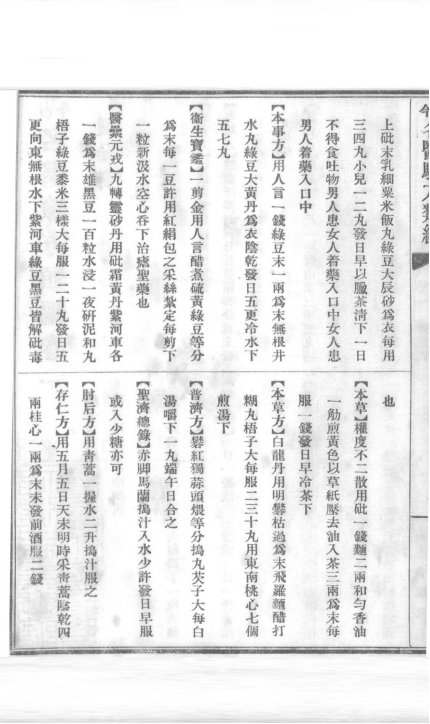 上砒末乳細粟米飯丸綠豆大辰砂爲衣每用
三四丸小兒一二丸發日早以臘茶淸下一日
不得食吐物男人患女人着藥入口中女人患
男人着藥入口中
【本事方】用人言一錢綠豆末一兩爲末無根井
水丸綠豆大黃丹爲衣陰乾發日五更冷水下
五七丸
【衞生寶鑑】一剪金用人言醋煮硫黃綠豆等分
爲末每一豆許用紅絹包之采絲紮定每剪下
一粒新汲水空心吞下治瘧聖藥也
【醫壘元戎】九轉靈砂丹用砒霜黃丹紫河車各
一錢爲末雄黑豆一百粒水浸一夜硏泥和丸
梧子綠豆黍米三樣大每服一二十丸發日五
更向東無根水下紫河車綠豆黑豆皆解砒毒
也
【本草】權度不二散用砒一錢麵二兩和勻香油
一觔煎黃色以草紙壓去油入茶三兩爲末每
服一錢發日早冷茶下
【本草方】白龍丹用明礬枯過爲末飛羅麵醋打
糊丸梧子大每服二三十丸用東南桃心七個
煎湯下
【普濟方】礬紅獨蒜頭煨等分搗丸芡子大每白
湯嚼下一丸端午日合之
【聖濟總錄】赤脚馬蘭搗汁入水少許發日早服
或入少糖亦可
【肘后方】用靑蒿一握水二升搗汁服之
【存仁方】用五月五日天未明時采靑蒿陰乾四
兩桂心一兩爲末未發前酒服二錢